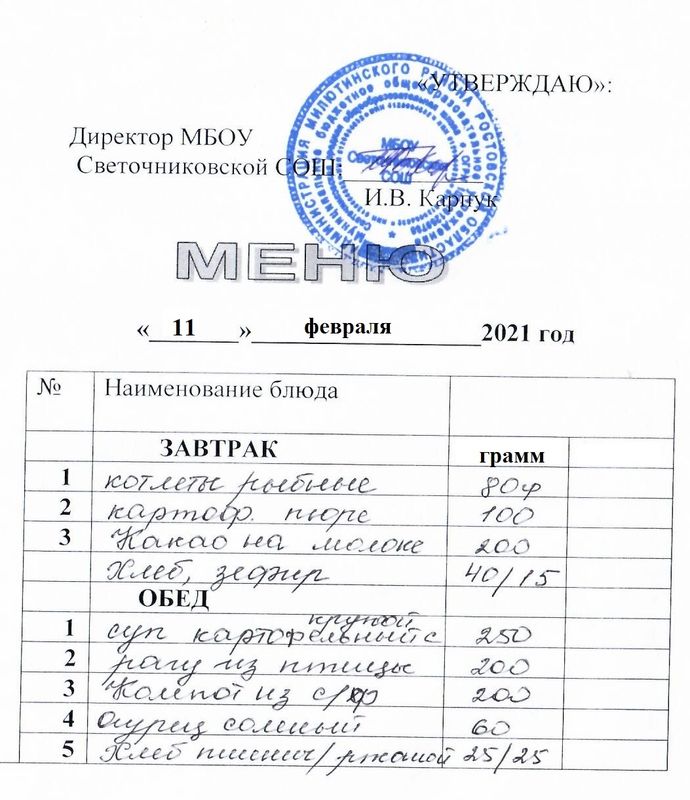 «УТВЕРЖДАЮ»:
Директор МБОУ
Светочниковской СОШ:
И.В. Карпук
МБОУ
Светочниковская
СОШ
МЕНЮ
« 11 » февраля 2021 год
№ Наименование блюда
ЗАВТРАК грамм
1 котлеты рыбные 80
2 картоф. пюре 100
3 Какао на молоке 200
Хлеб, зефир 40/15
ОБЕД
крупой
1 суп картофельный с 250
2 рагу из птицы 200
3 Компот из с/ф 200
4 огурец соленый 60
5 Хлеб пшенич/ржаной 25/25